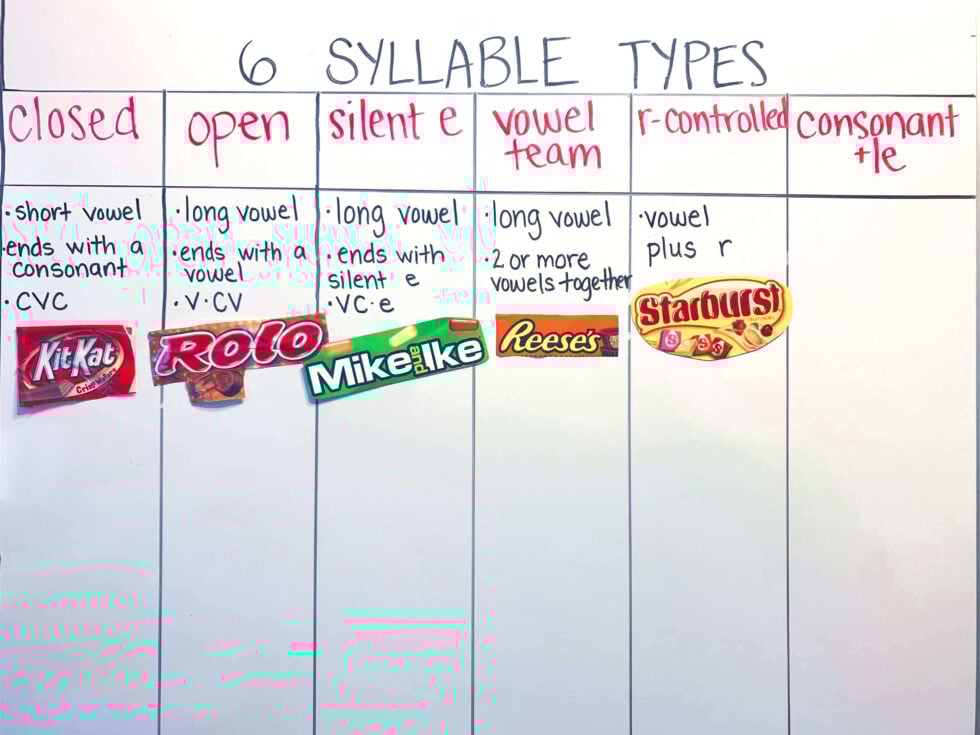 6 SYLLABLE TYPES
closed
open
silent e
vowel
team
r-controlled
consonant
+le
·short vowel
·ends with a
consonant
·CVC
·long vowel
·ends with a
vowel
·V·CV
·long vowel
·ends with
silent e
·VC·e
·long vowel
·2 or more
vowels together
·vowel
plus r
KitKat
Crisp Wafers
ROLO
Mike and Ike
Reese's
Starburst